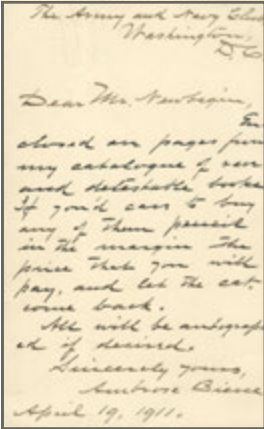 The Army and Navy Club
Washington,
D.C.
Dear Mr. Newbegin,
En-
closed are pages from
my catalogue of rare
and detestable books.
If you'd care to buy
any of them pencil
in the margin the
price that you will
pay, and let the cat.
come back.
All will be autograph-
ed if desired.
Sincerely yours,
Ambrose Bierce
April 19, 1911.